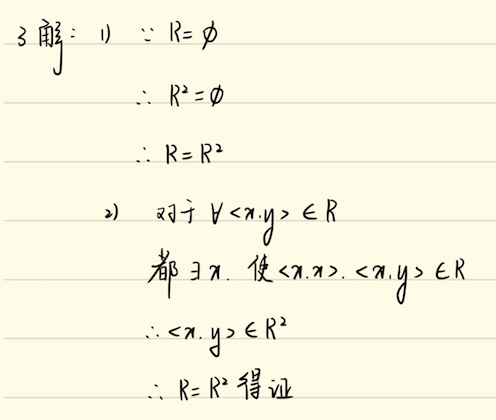 3 解: 1) ∵ R=∅
∴ R²=∅
∴ R=R²
2) 对于 ∀<x.y> ∈ R
都 ∃x. 使<x.x>. <x,y> ∈ R
∴<x.y> ∈ R²
∴ R=R² 得证